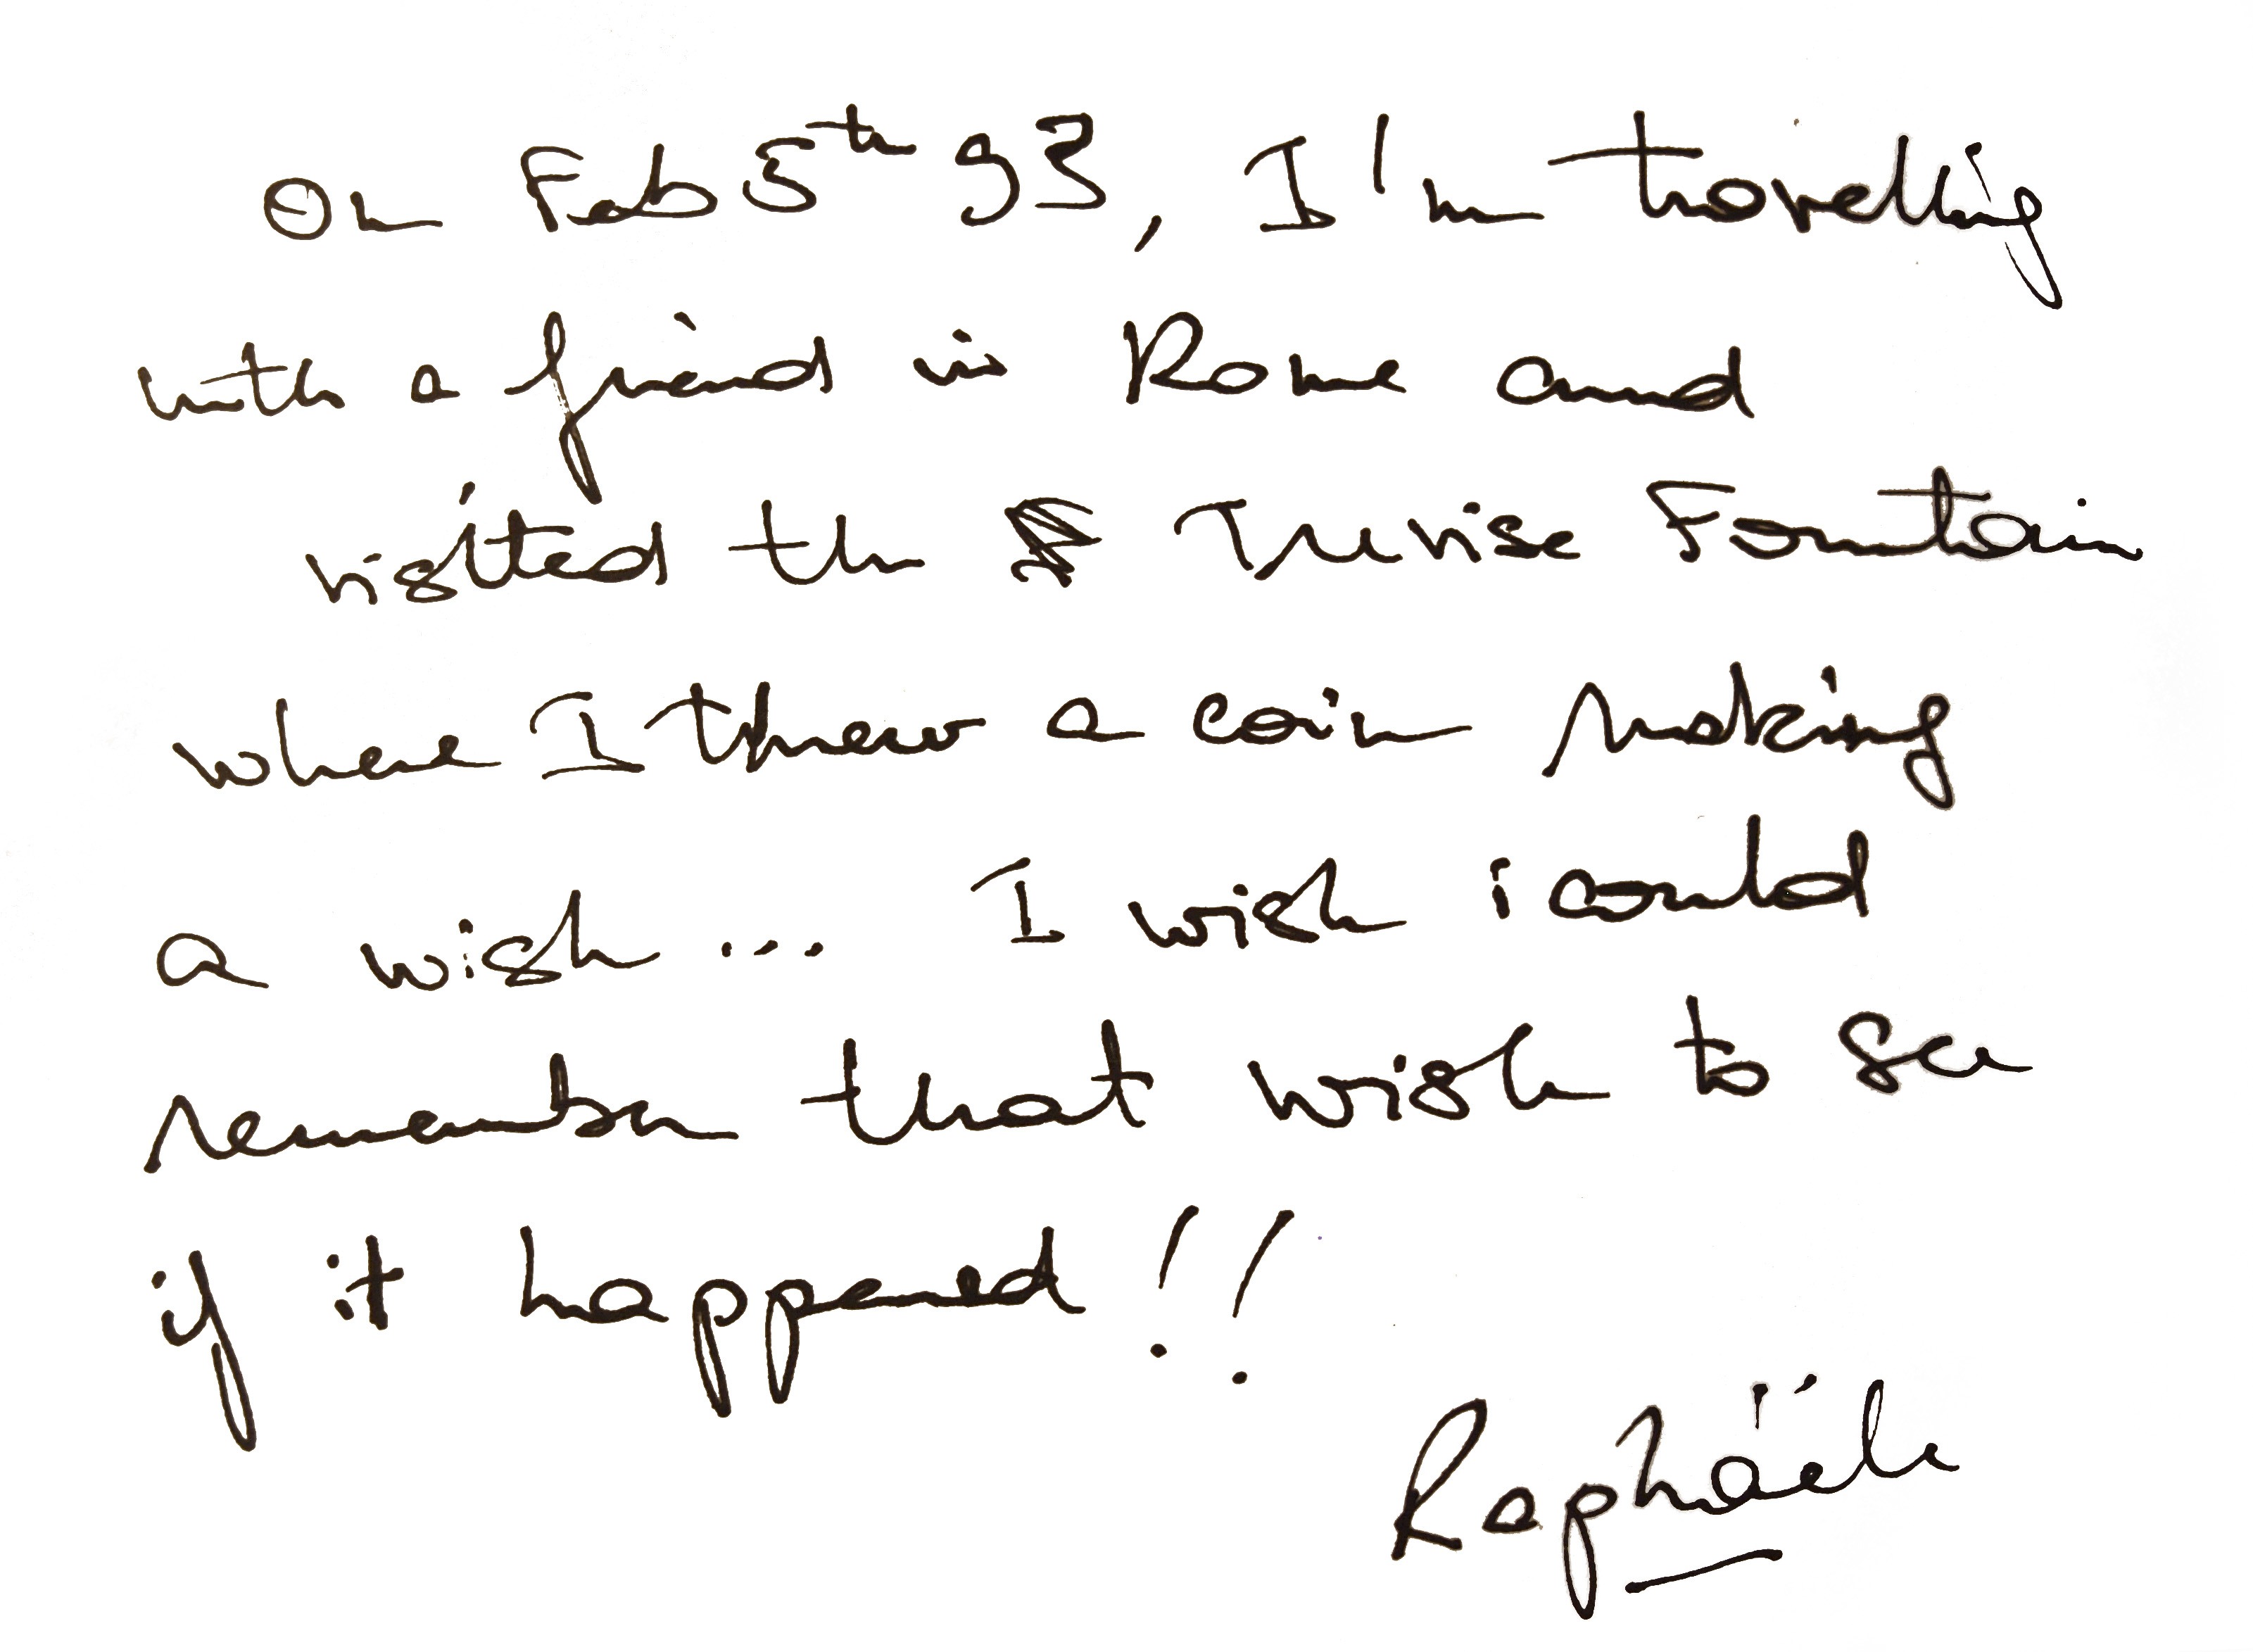 On Feb 5th 93, I'm travelling
with a friend in Rome and
visited the Trevise Fountain
where I threw a coin making
a wish ... I wish i could
remember that wish to see
if it happened !!
Raphaële